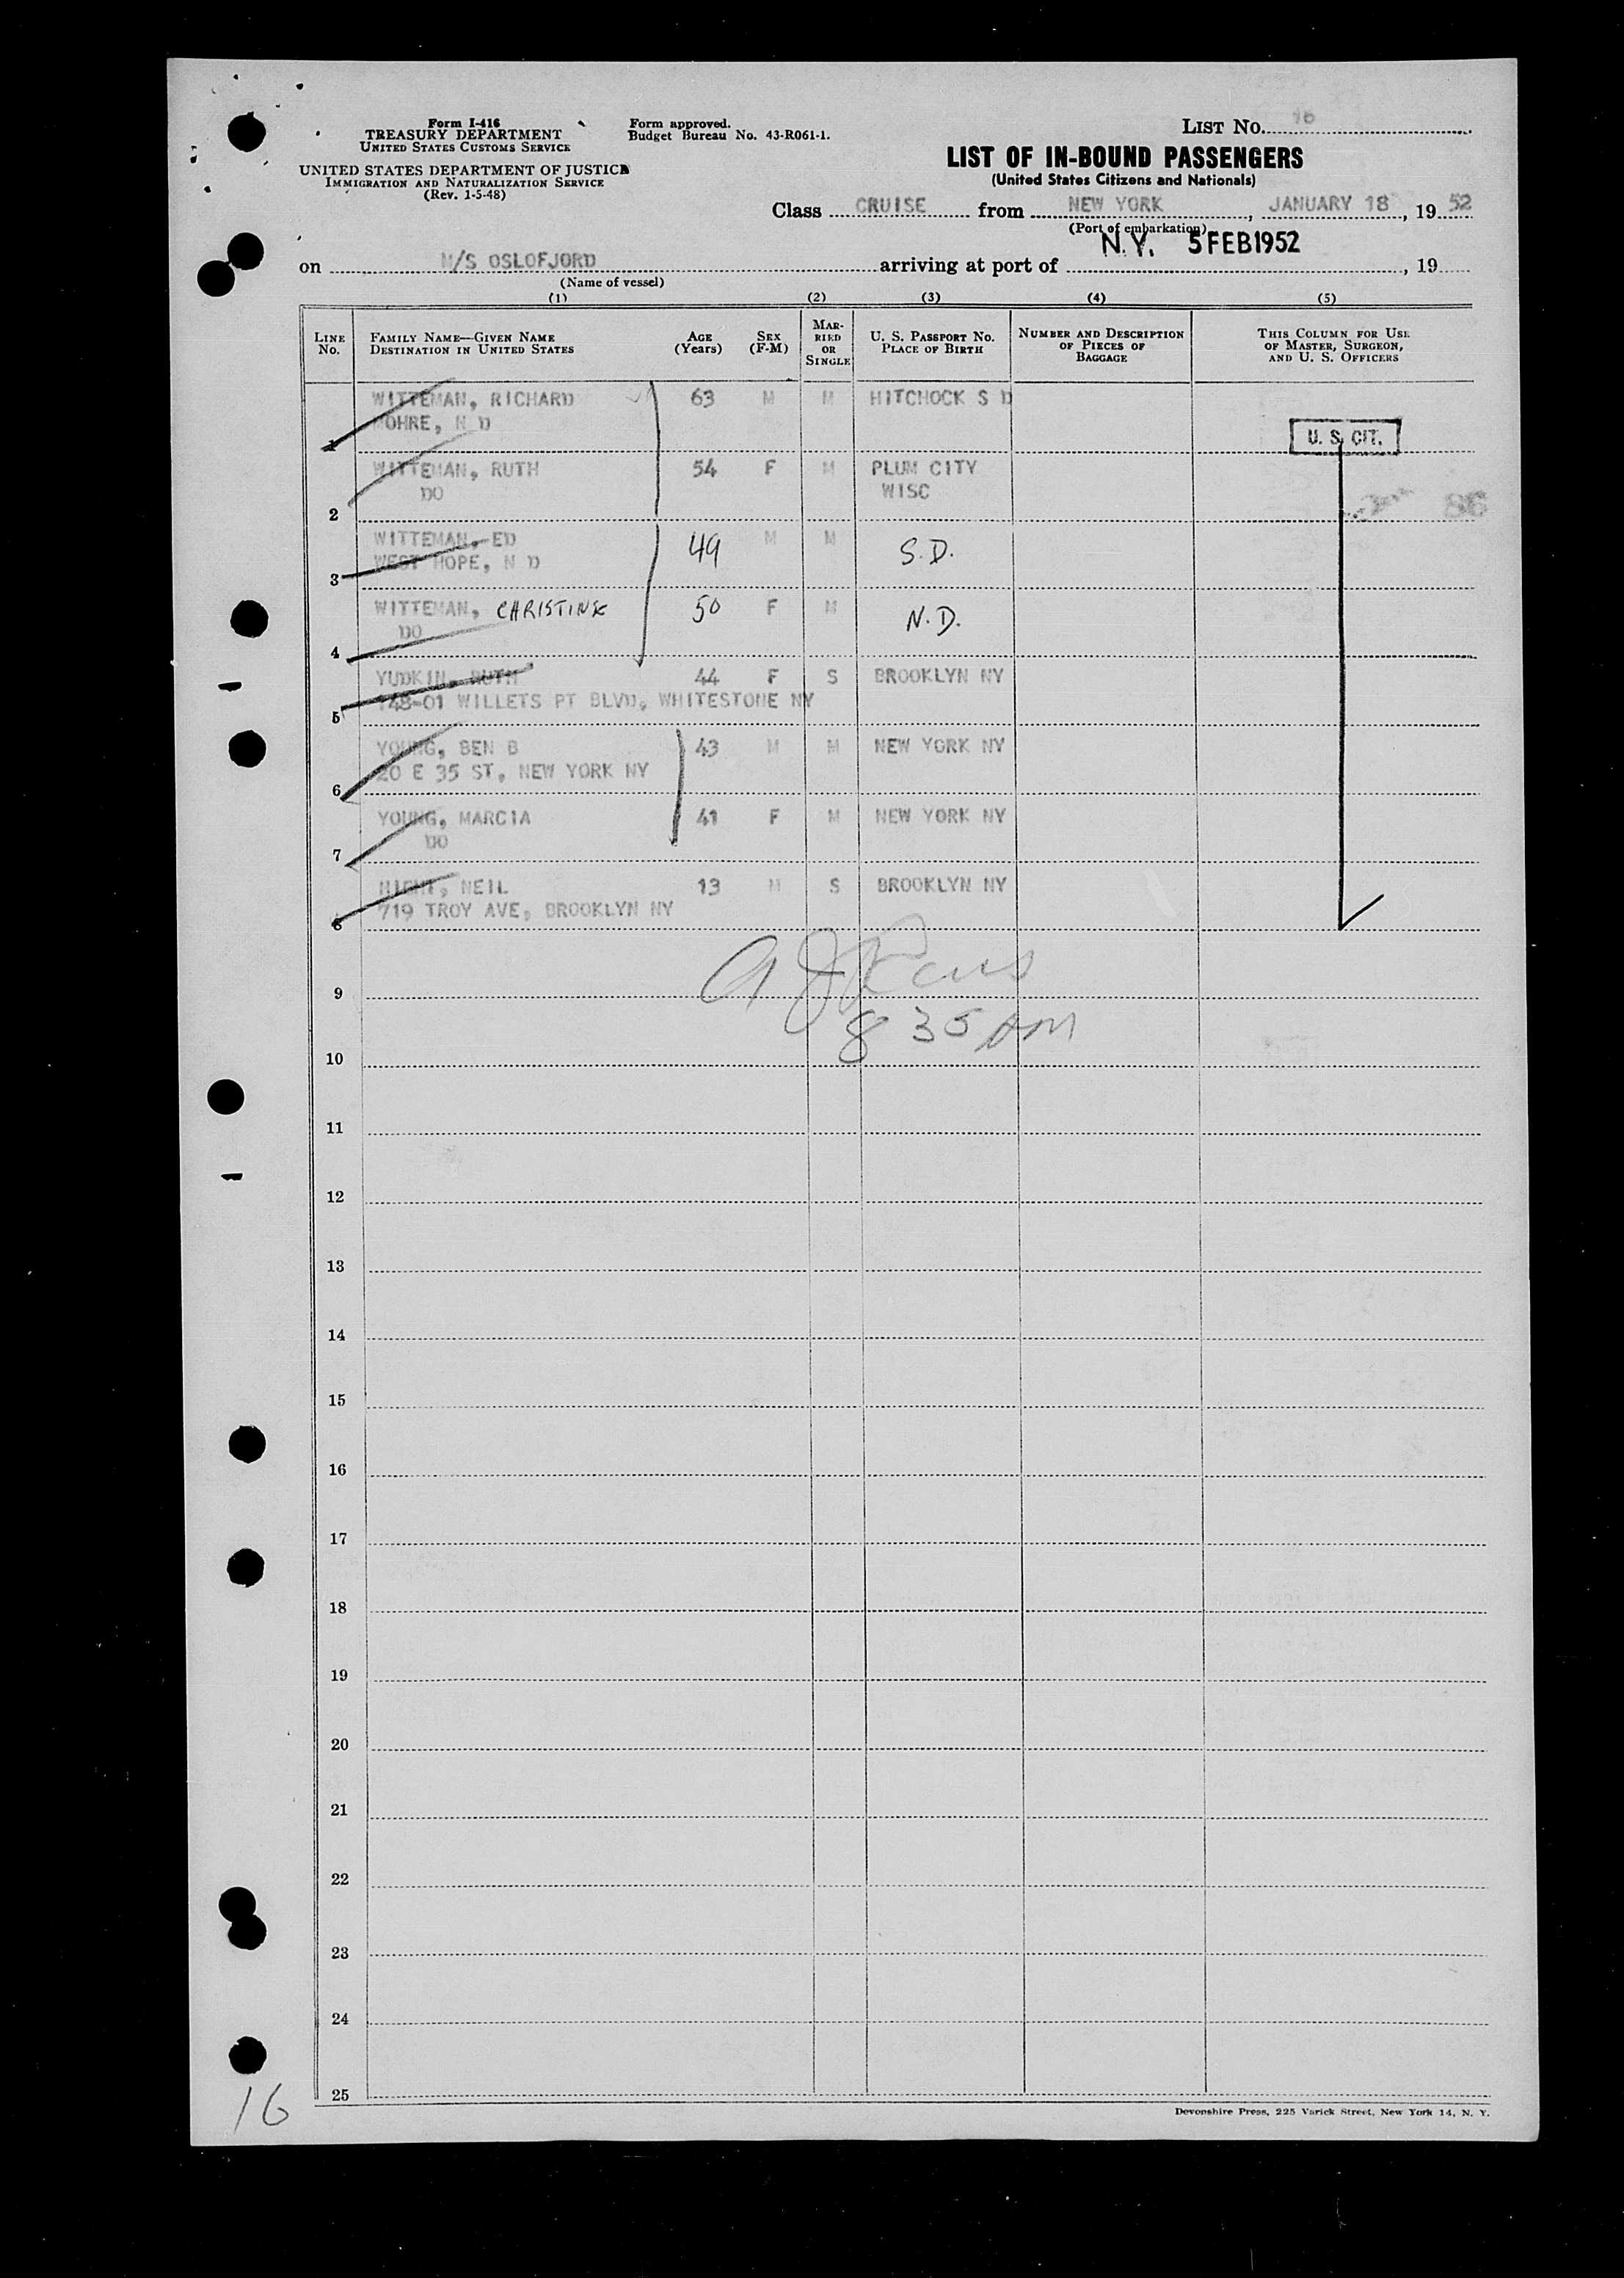 Form I-416
TREASURY DEPARTMENT
UNITED STATES CUSTOMS SERVICE
UNITED STATES DEPARTMENT OF JUSTICE
IMMIGRATION AND NATURALIZATION SERVICE
(Rev. 1-5-48)
Form approved.
Budget Bureau No. 43-R061-1.
LIST NO. 16
LIST OF IN-BOUND PASSENGERS
(United States Citizens and Nationals)
Class CRUISE from NEW YORK, JANUARY 18, 19 52
(Port of embarkation)
on M/S OSLOFJORD arriving at port of N.Y. 5 FEB 1952, 19
(Name of vessel)
(1) (2) (3) (4) (5)
LINE NO. FAMILY NAME—GIVEN NAME DESTINATION IN UNITED STATES AGE (Years) SEX (F-M) MARRIED OR SINGLE U. S. PASSPORT NO. PLACE OF BIRTH NUMBER AND DESCRIPTION OF PIECES OF BAGGAGE THIS COLUMN FOR USE OF MASTER, SURGEON, AND U. S. OFFICERS
WITTEMAN, RICHARD 63 M M HITCHOCK S D
1 MOHRE, N D U. S. CIT.
WITTEMAN, RUTH 54 F M PLUM CITY
DO WISC
2 86
WITTEMAN, ED 49 M M S.D.
3 WEST HOPE, N D
WITTEMAN, CHRISTINE 50 F M N.D.
4 DO
YUDKIN, RUTH 44 F S BROOKLYN NY
5 148-01 WILLETS PT BLVD, WHITESTONE NY
YOUNG, BEN B 43 M M NEW YORK NY
20 E 35 ST, NEW YORK NY
6
YOUNG, MARCIA 41 F M NEW YORK NY
DO
7
NEIL 13 M S BROOKLYN NY
8 719 TROY AVE, BROOKLYN NY
9
8 35 AM
10
11
12
13
14
15
16
17
18
19
20
21
22
23
24
25
16
Devonshire Press, 225 Varick Street, New York 14, N. Y.